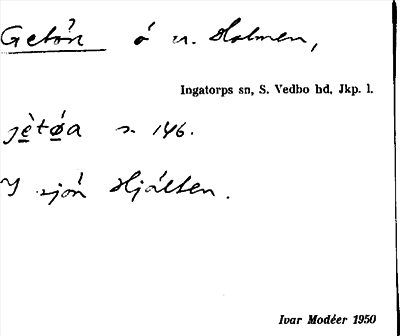 Getön ö n. Holmen,
Ingatorps sn, S. Vedbo hd, Jkp. l.
jètøa s. 146.
I sjön Hjälten.
Ivar Modéer 1950